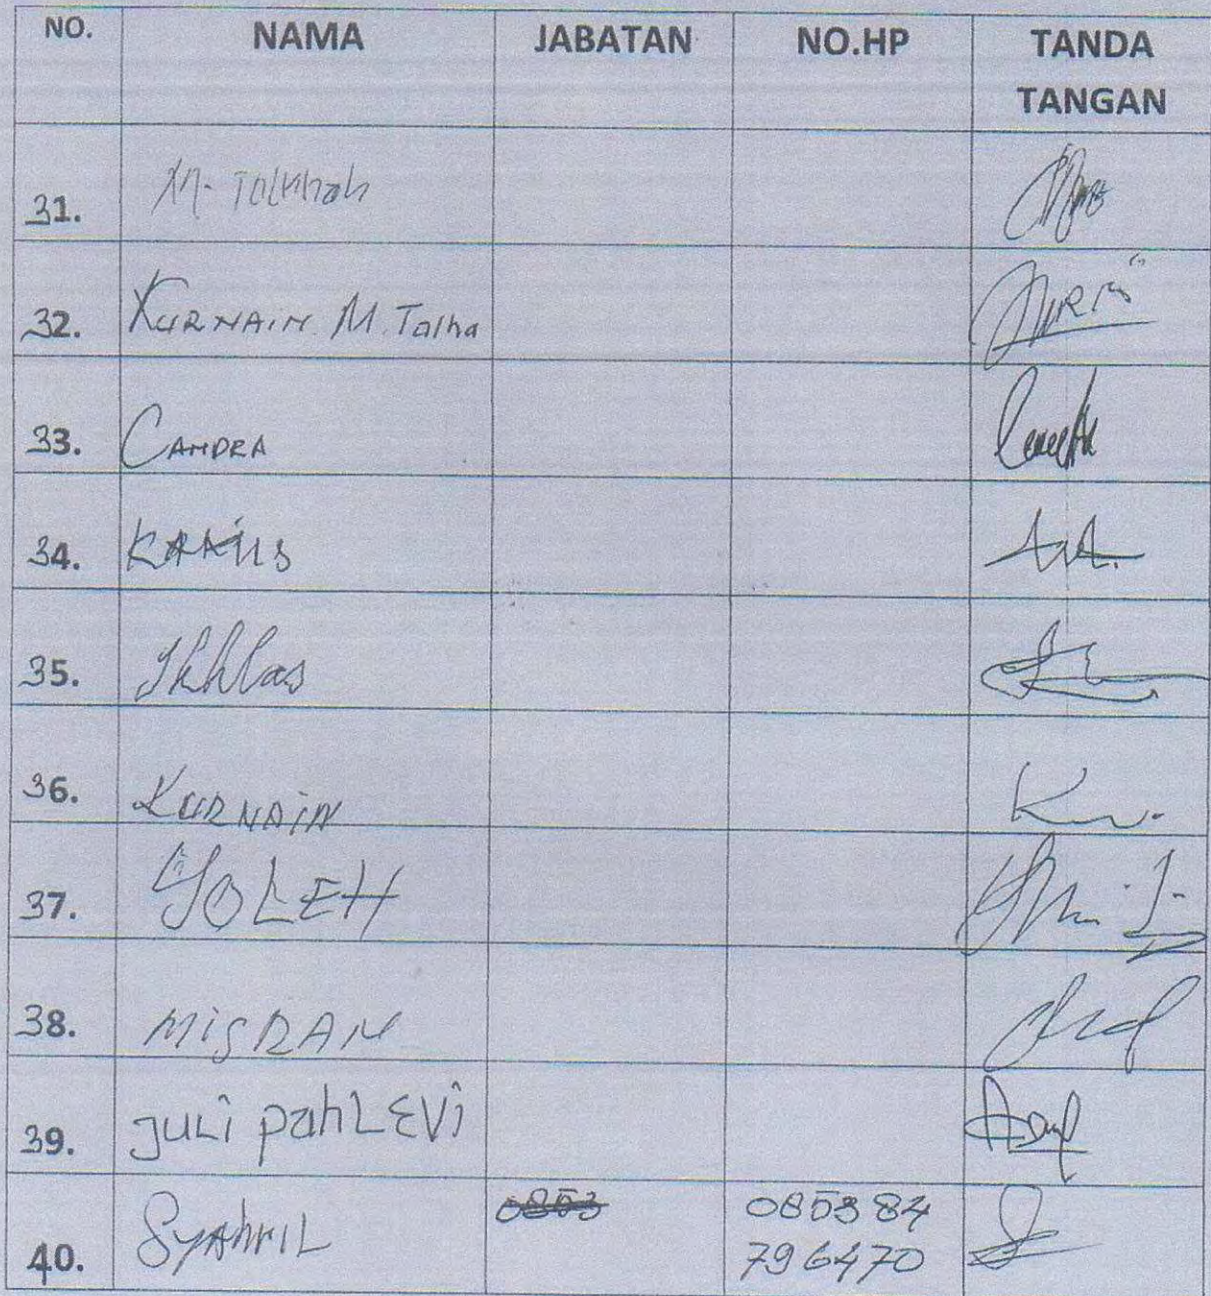 NO. NAMA JABATAN NO.HP TANDA TANGAN
31. M. Tolkhah
32. KURNAIN. M. Talha
33. CANDRA
34.
35. Ikhlas
36. KURNAIN
37. YOLEH
38. MISRAN
39. JULi pahLEVi
40. SyAhrIL 0853 085384
796470